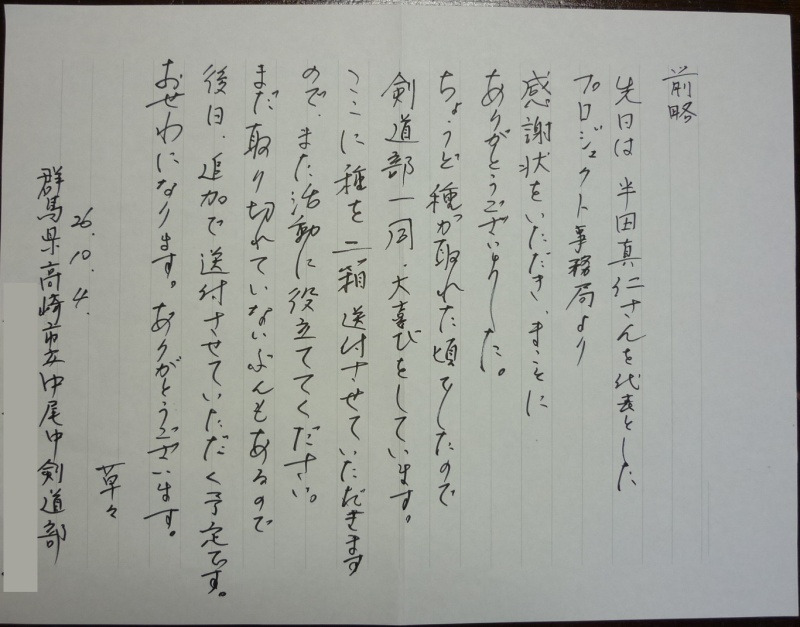 前略
先日は半田真仁さんを代表とした
プロジェクト事務局より
感謝状をいただき、まことに
ありがとうございました。
ちょうど種が取れた頃でしたので
剣道部一同、大喜びをしています。
ここに種を二箱送付させていただきます
ので、また活動に役立ててください。
まだ取り切れていないぶんもあるので
後日、追加で送付させていただく予定です。
おせわになります。ありがとうございます。
草々
26.10.4.
群馬県高崎市立中尾中剣道部